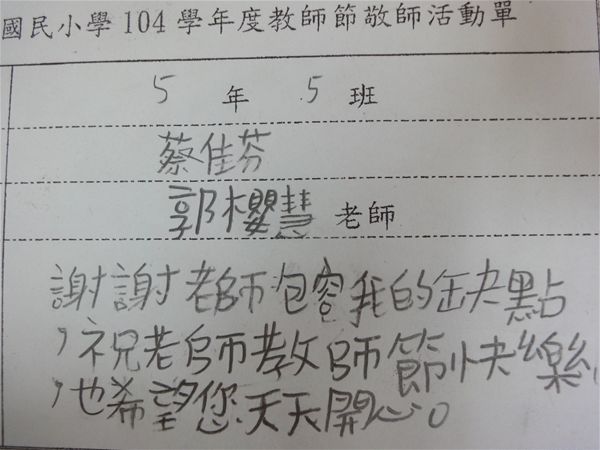 國民小學104學年度教師節敬師活動單
5 年 5 班
蔡佳芬
郭櫻慧 老師
謝謝老師包容我的缺點
，祝老師教師節快樂，
，也希望您天天開心。